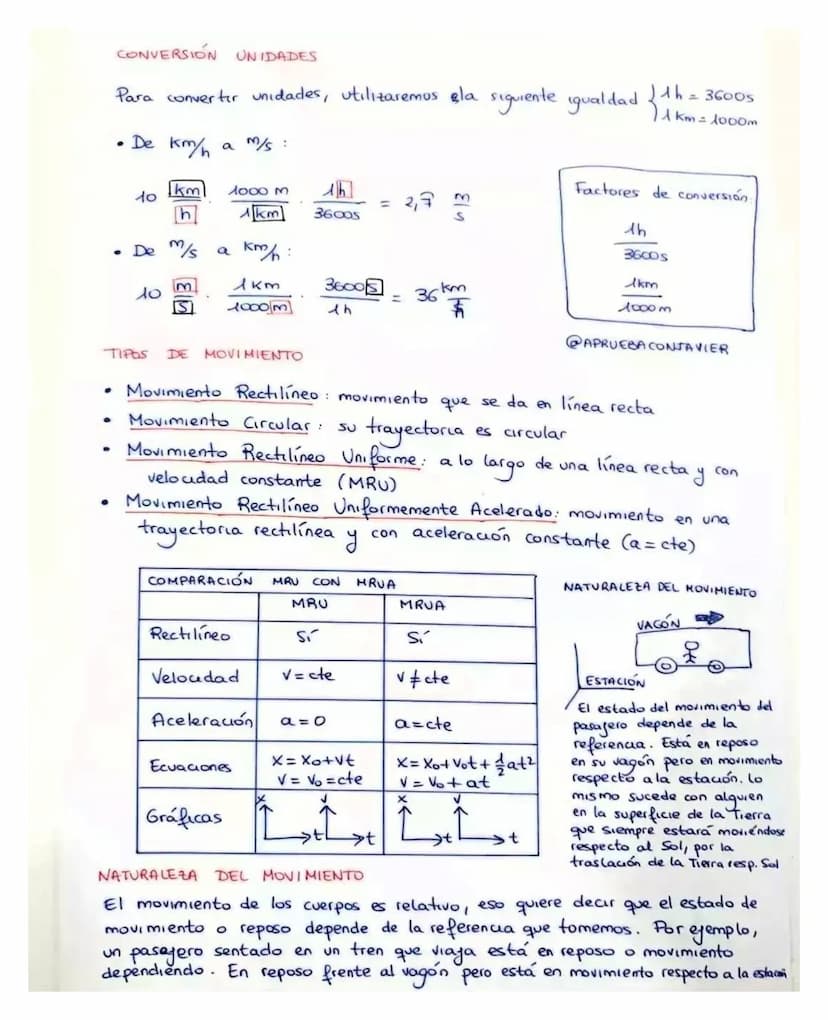 CONVERSIÓN UNIDADES
Para convertir unidades, utilizaremos la siguiente igualdad { 1h = 3600s
1 km = 1000m
• De km/h a m/s :
10 km/h · 1000 m/1 km · 1h/3600s = 2,7 m/s
• De m/s a km/h :
10 m/s · 1 km/1000 m · 3600 s/1h = 36 km/h
Factores de conversión
1h/3600s
1km/1000m
@APRUEBACONJAVIER
TIPOS DE MOVIMIENTO
• Movimiento Rectilíneo : movimiento que se da en línea recta
• Movimiento Circular : su trayectoria es circular
• Movimiento Rectilíneo Uniforme : a lo largo de una línea recta y con
velocidad constante (MRU)
• Movimiento Rectilíneo Uniformemente Acelerado : movimiento en una
trayectoria rectilínea y con aceleración constante (a = cte)
COMPARACIÓN MRU CON MRUA
MRU MRUA
Rectilíneo Sí Sí
Velocidad v = cte v ≠ cte
Aceleración a = 0 a = cte
Ecuaciones x = x0 + vt x = x0 + v0t + 1/2 at²
v = v0 = cte v = v0 + at
Gráficas x t v t x t v t
NATURALEZA DEL MOVIMIENTO
VAGÓN
ESTACIÓN
El estado del movimiento del
pasajero depende de la
referencia. Está en reposo
en su vagón pero en movimiento
respecto a la estación. Lo
mismo sucede con alguien
en la superficie de la Tierra
que siempre estará moviéndose
respecto al Sol, por la
traslación de la Tierra resp. Sol
NATURALEZA DEL MOVIMIENTO
El movimiento de los cuerpos es relativo, eso quiere decir que el estado de
movimiento o reposo depende de la referencia que tomemos. Por ejemplo,
un pasajero sentado en un tren que viaja está en reposo o movimiento
dependiendo. En reposo frente al vagón pero está en movimiento respecto a la estación